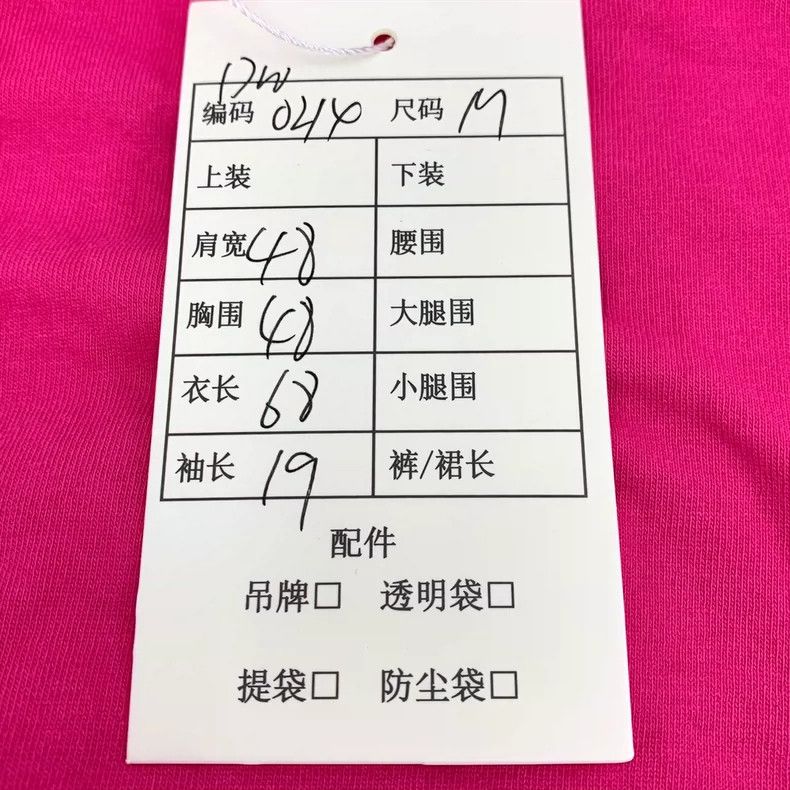 编码 044 尺码 M
上装 下装
肩宽 48 腰围
胸围 48 大腿围
衣长 68 小腿围
袖长 19 裤/裙长
配件
吊牌□ 透明袋□
提袋□ 防尘袋□